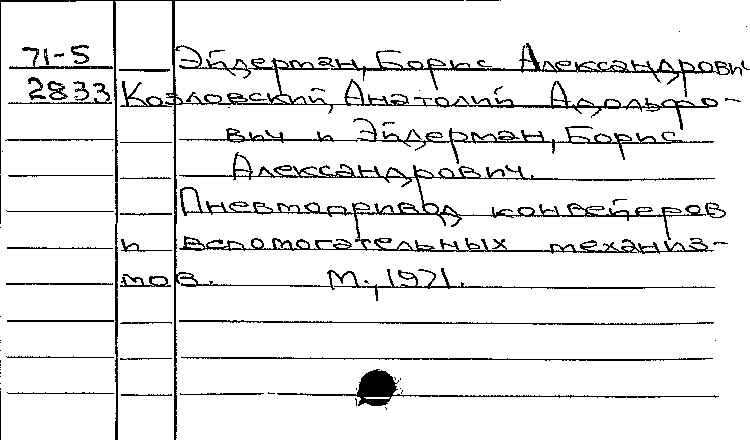 71-5 Эйдерман, Борис Александрович
2833 Козловский, Анатолий Адольфо-
вич и Эйдерман, Борис
Александрович.
Пневмопривод конвейеров
и вспомогательных механиз-
мов. М., 1971.